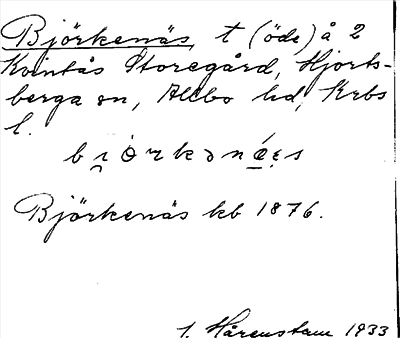 Björkenäs, t (öde) å 2
Kvintås Storegård, Hjorts-
berga sn, Allbo hd, Krbs
l.
Björkenäs kb 1876.
1. Hårenstam 1933